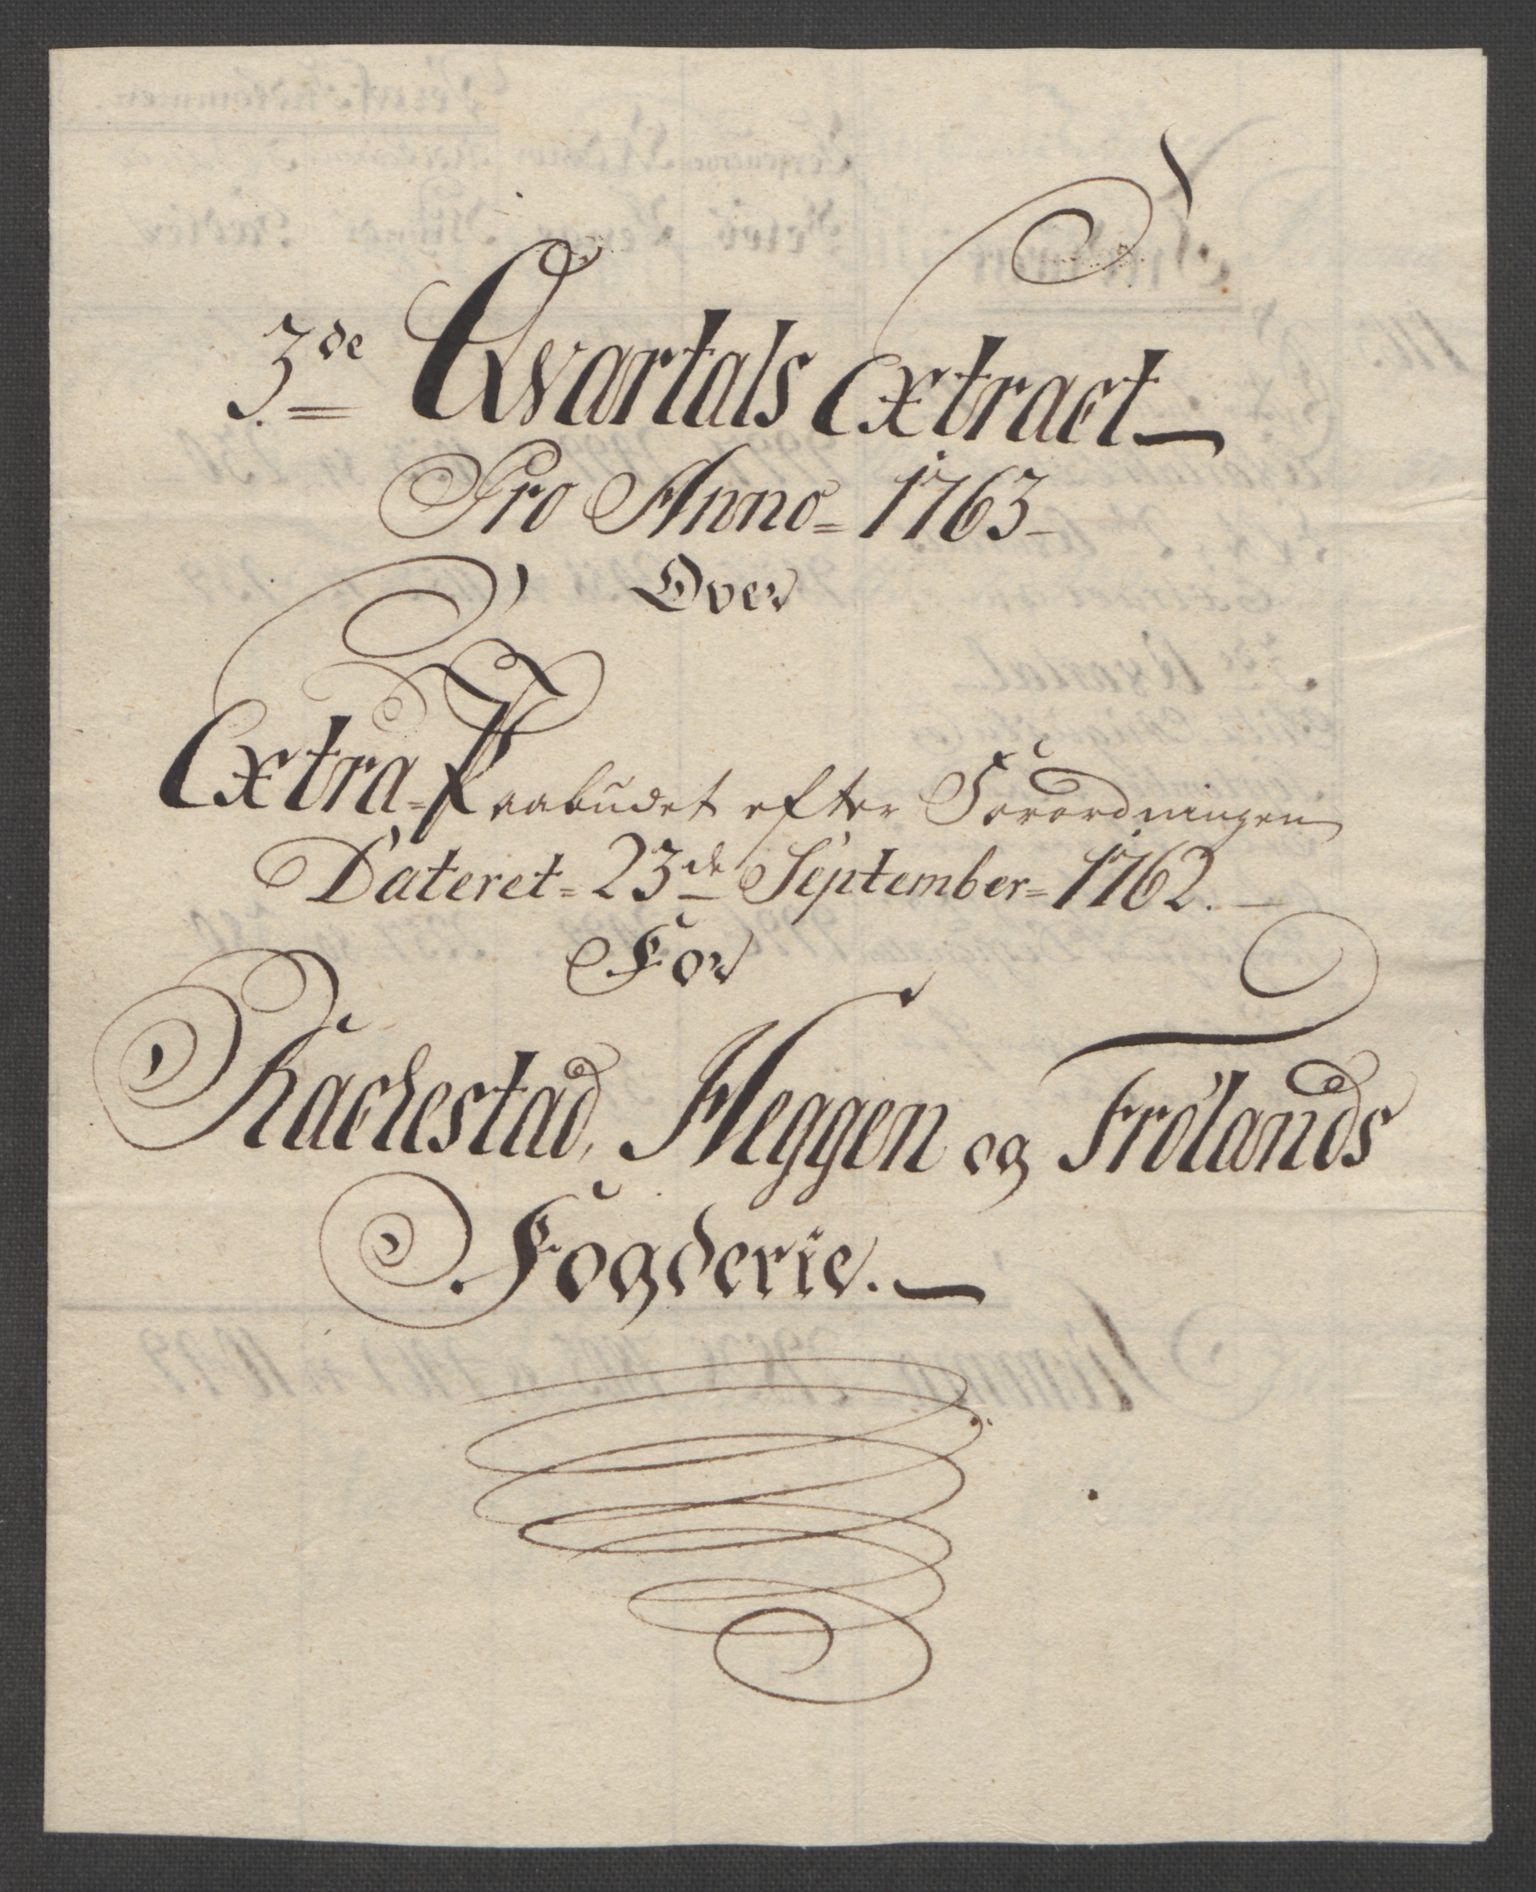 3de Qvartals Extract
Pro Anno 1763
Over
Extra-Paabudet efter Forordningen
Dateret 23de September 1762.
For
Rachestad, Heggen og Frölands
Fogderie.